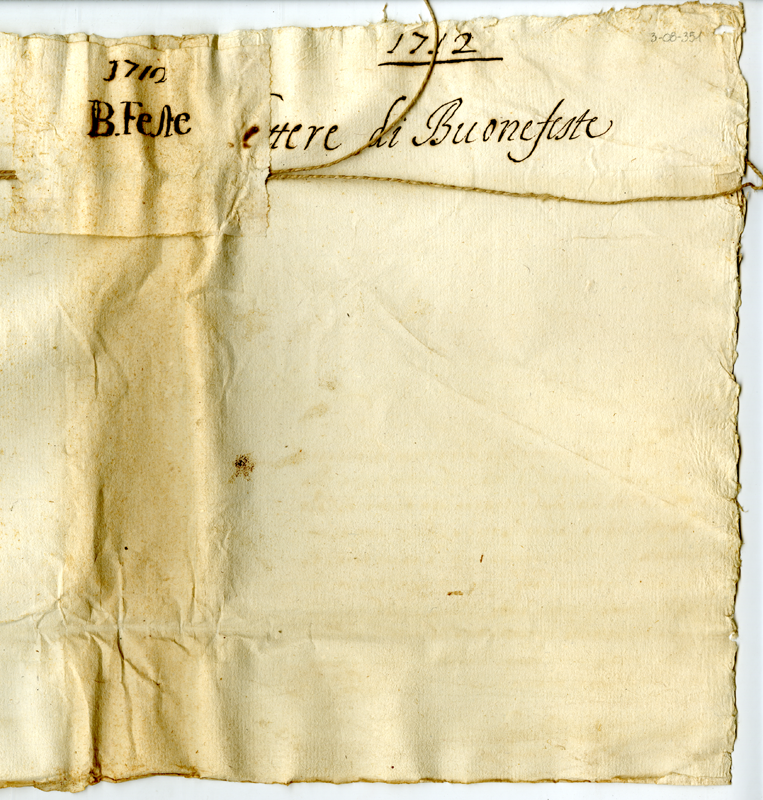 1712
B. Feste
1712
3-08-351
ettere di Buonefeste